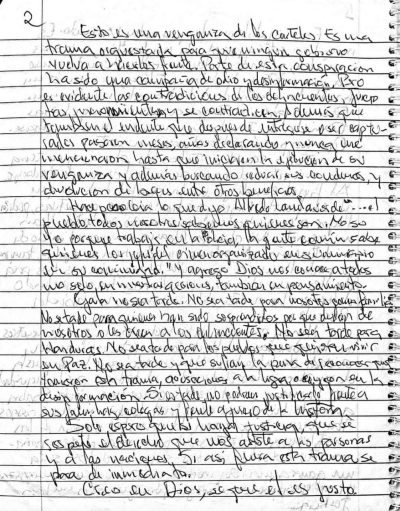 2
Esto es una venganza de los carteles. Es una
trama orquestada para que ningún gobierno
vuelva a hacerles frente. Parte de esta conspiración
ha sido una campaña de odio y desinformación. Pero
es evidente las contradicciones de los delincuentes,
y se contradicen, además que
también es evidente que después de entregarse o ser captu-
rados pasaron meses, años declarando y nunca me
mencionaron hasta que iniciaron la ejecución de su
venganza y además buscando reducir sus condenas, y
devolución de bienes entre otros beneficios
Hace poco oía lo que dijo Alfredo Landaverde "....el
pueblo, todos nosotros sabemos quienes son. No so
lo yo porque trabajé en la Policía, la gente común sabe
quienes los jefes del crimen organizado en su municipio
en su comunidad." y agregó Dios nos conoce a todos
no solo en nuestras acciones, también en pensamiento.
Ojalá no sea tarde. No sea tarde para nosotros como familia.
No sea tarde para quienes han sido sorprendidos
nosotros o les creen a los delincuentes. No sea tarde para
Honduras. No sea tarde para los pueblos que quieren vivir
en Paz. No sea tarde y que sufran la pena
esta trama,
desinformación. Si es tarde no podrán justificarlo frente a
sus familias, colegas y frente al juicio de la historia
Solo espero que haya justicia, que se
respete el derecho que nos asiste a las personas
y a las naciones. Si así fuera esta trama se
para de inmediato.
Creo en Dios, sé que él es justo